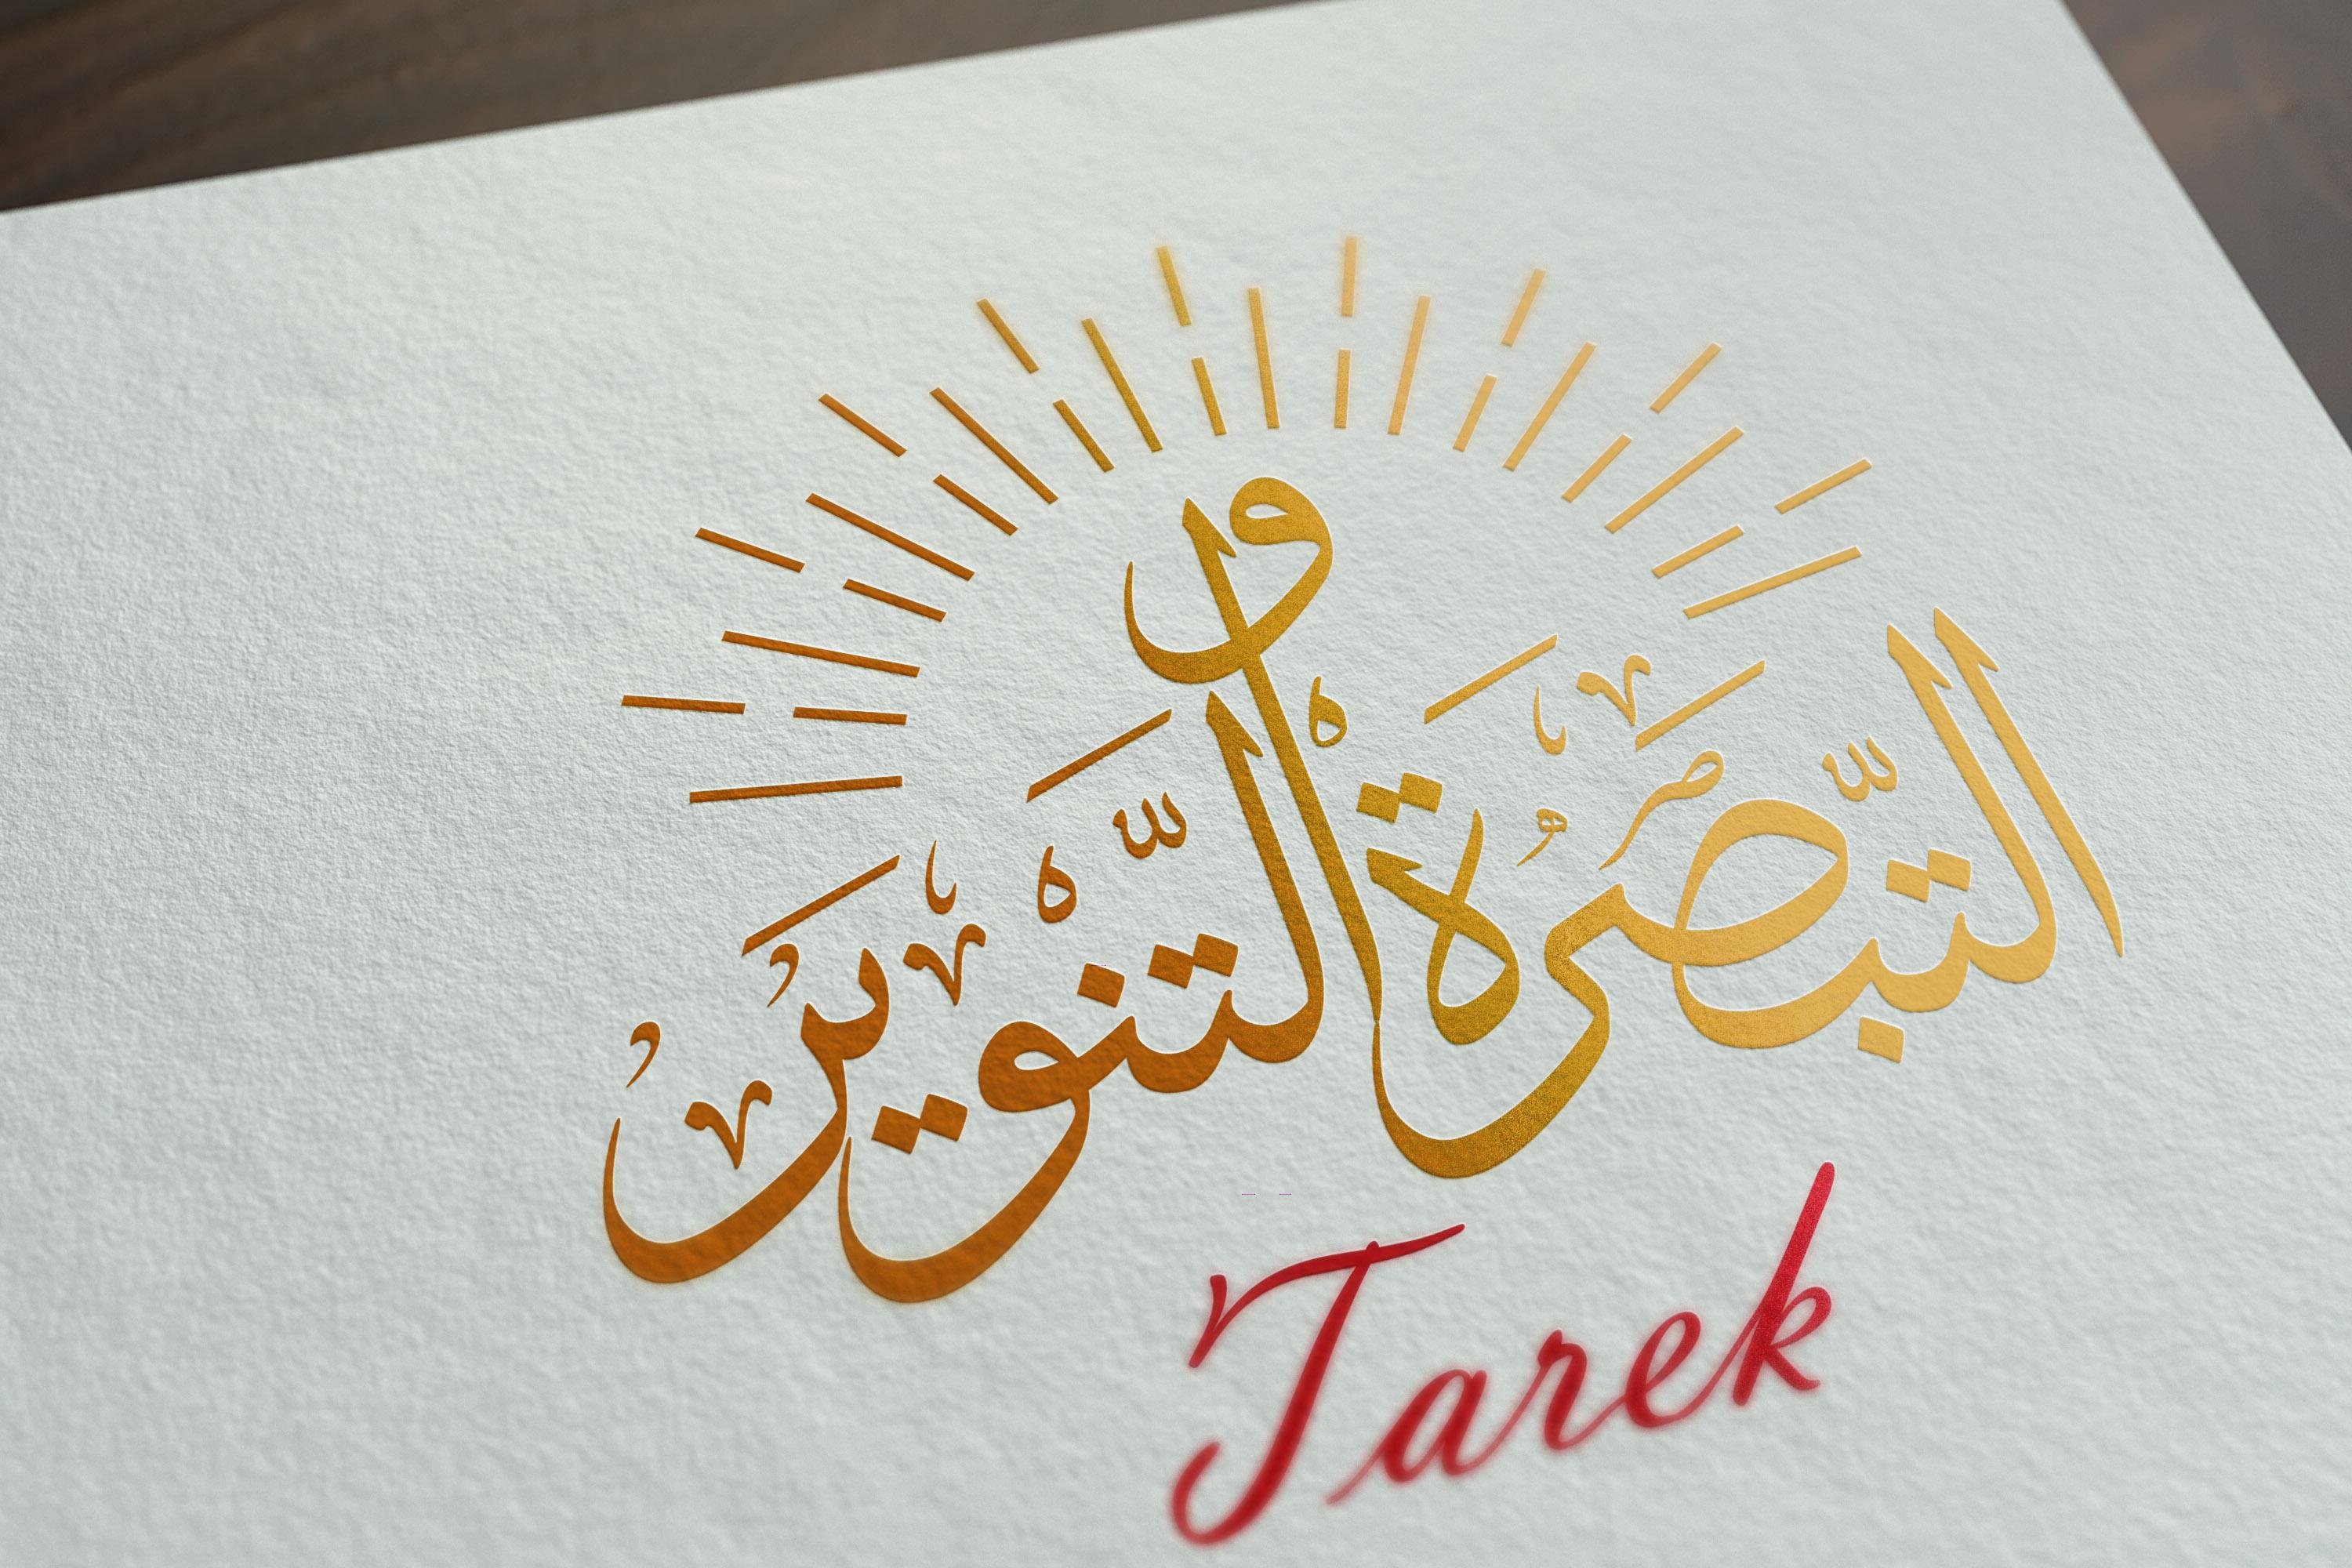 التبصرة و التنوير
Tarek